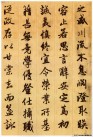 之盛川流不息淵澄取映
容止若思言辭安定篤初
誠美慎終宜令榮業所基
籍甚無竟學優登仕攝職
從政存以甘棠去而益詠